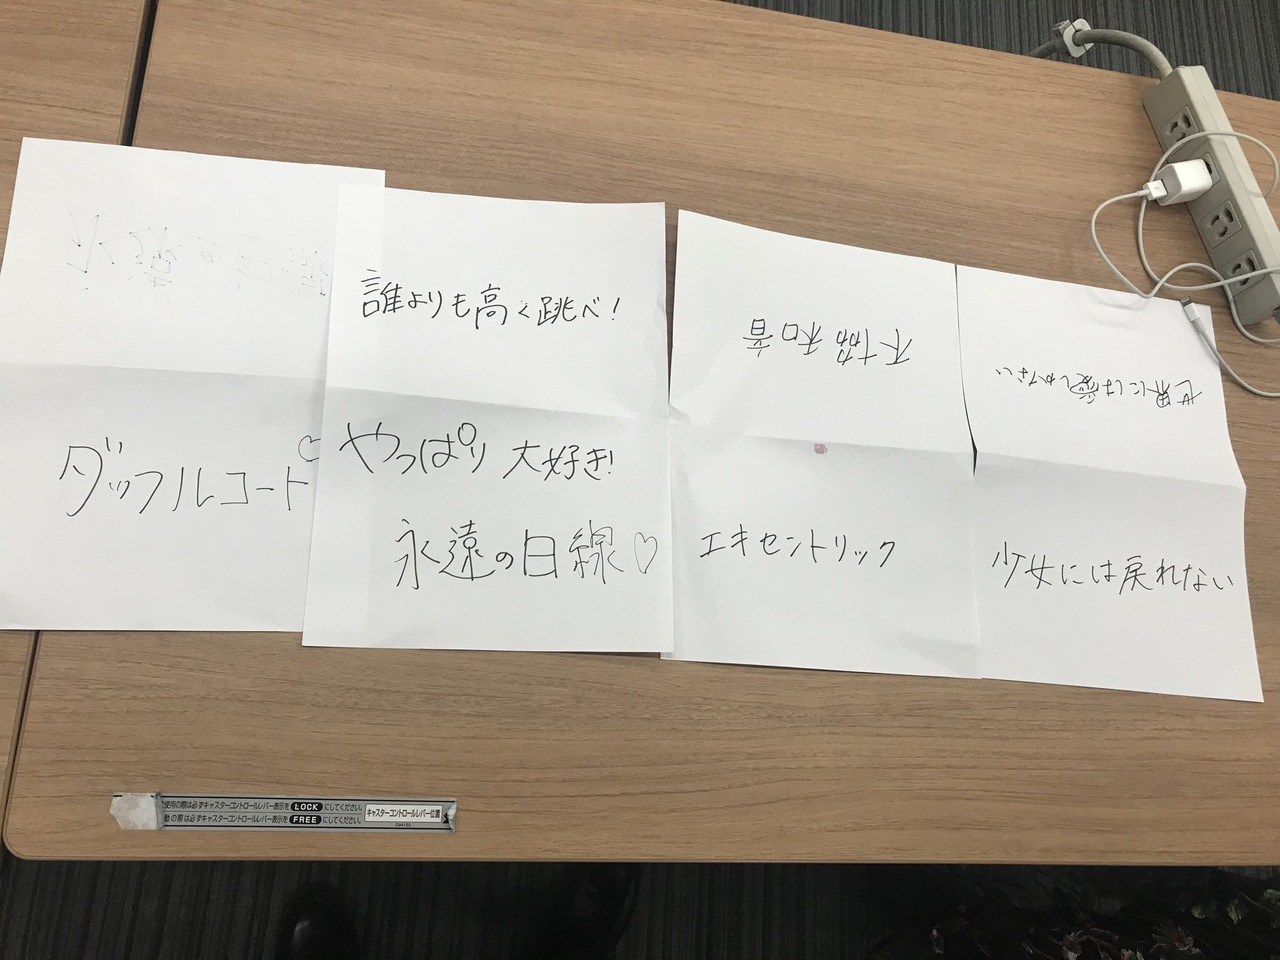 ダッフルコート♡
誰よりも高く跳べ!
やっぱり大好き!
永遠の白線♡
不協和音
エキセントリック
世界には愛しかない
少女には戻れない
使用の際は必ずキャスターコントロールレバー表示を LOCK にしてください。
動の際は必ずキャスターコントロールレバー表示を FREE にしてください。
キャスターコントロールレバー位置